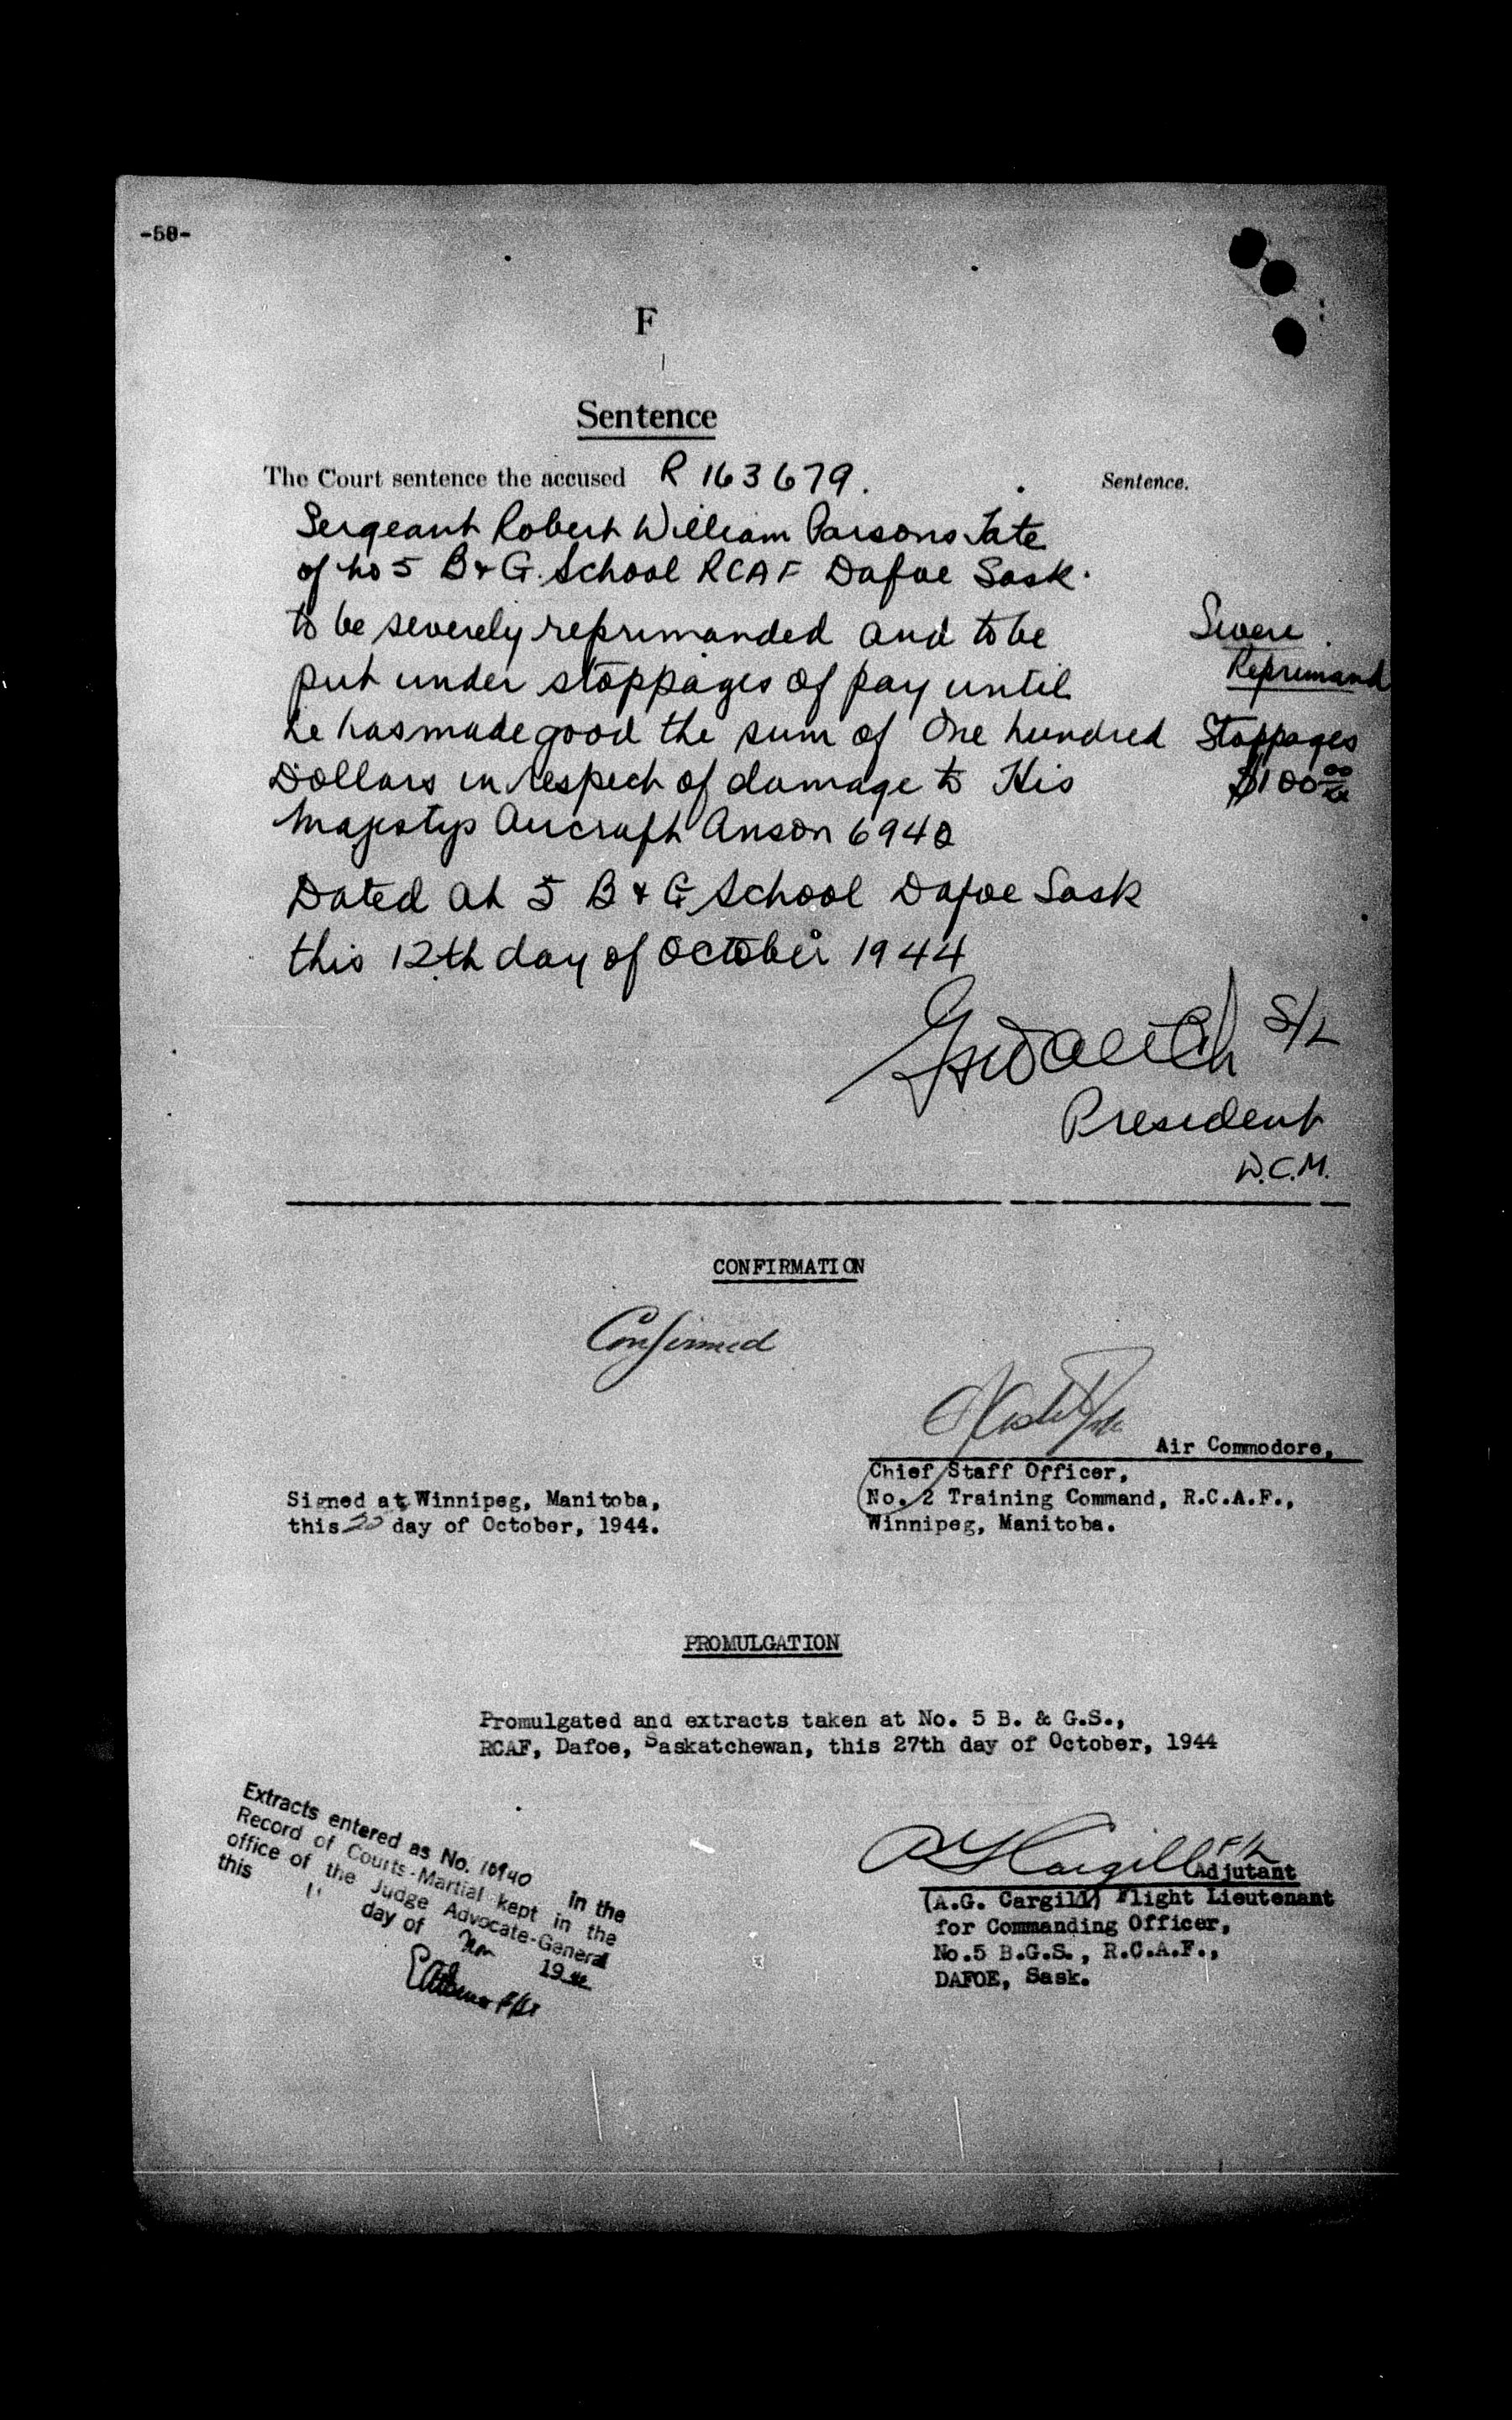 -50-
F
Sentence
The Court sentence the accused R 163679.
Sentence.
Sergeant Robert William Parsons Tate
of No 5 B & G. School RCAF Dafoe Sask.
to be severely reprimanded and to be
Severe
put under stoppages of pay until
Reprimand
he has made good the sum of One hundred
Stoppages
Dollars in respect of damage to His
$100 00
Majestys Aircraft Anson 6940
Dated at 5 B & G School Dafoe Sask
this 12th day of October 1944
S/L
President
D.C.M.
CONFIRMATION
Confirmed
Air Commodore,
Chief Staff Officer,
No. 2 Training Command, R.C.A.F.,
Winnipeg, Manitoba.
Signed at Winnipeg, Manitoba,
this 20 day of October, 1944.
PROMULGATION
Promulgated and extracts taken at No. 5 B. & G.S.,
RCAF, Dafoe, Saskatchewan, this 27th day of October, 1944
Extracts entered as No. 10940 in the
Record of Courts-Martial kept in the
office of the Judge Advocate-General
this day of Nov 19
AG Cargill F/L
Adjutant
(A.G. Cargill) Flight Lieutenant
for Commanding Officer,
No.5 B.G.S., R.C.A.F.,
DAFOE, Sask.